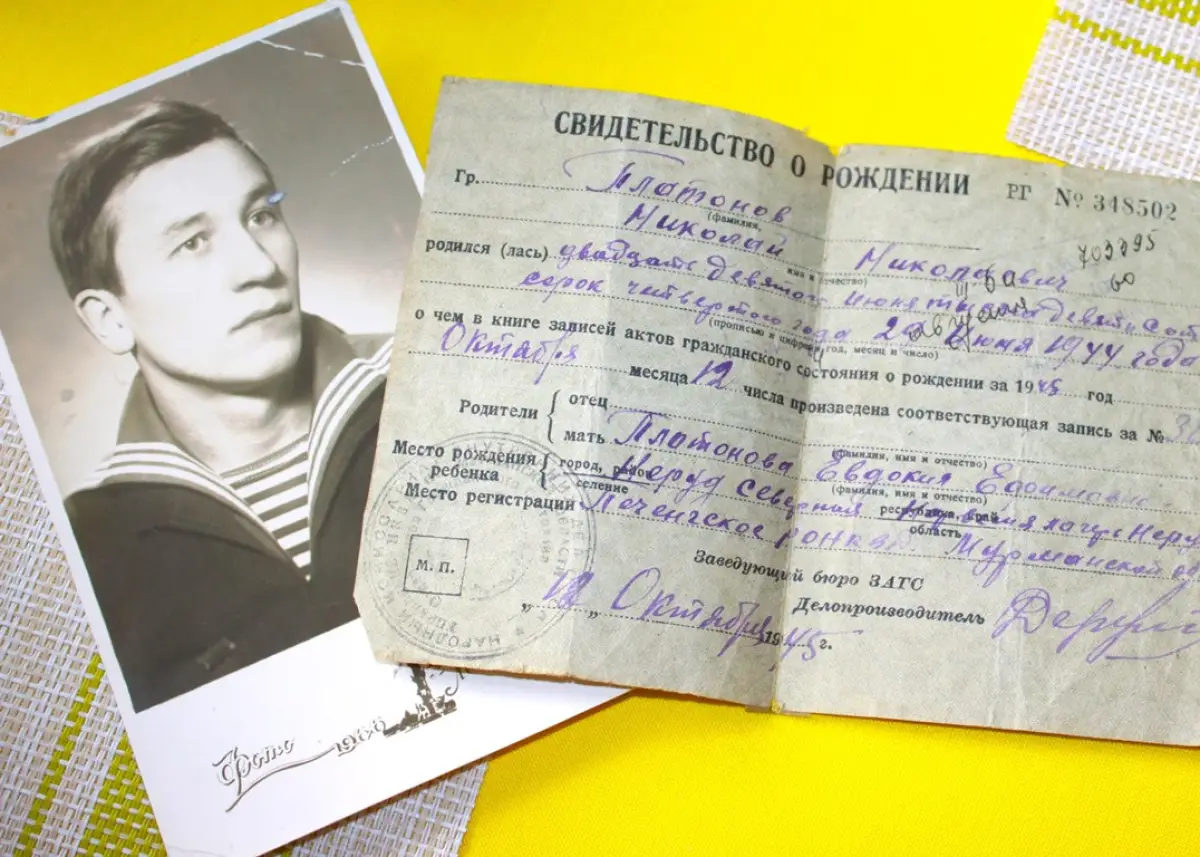 СВИДЕТЕЛЬСТВО О РОЖДЕНИИ РГ № 348502
Гр. Платонов
(фамилия,
703395
Николай Николаевич
имя и отчество)
родился (лась) двадцать девятого июня тысяча девятьсот
сорок четвертого года 29 июня 1944 года
(прописью и цифрами год, месяц и число)
о чем в книге записей актов гражданского состояния о рождении за 1945 год
Октября месяца 12 числа произведена соответствующая запись за №
Родители
отец
(фамилия, имя и отчество)
мать Платонова Евдокия
(фамилия, имя и отчество)
Место рождения ребенка
город, район
селение
республика, край
область
Место регистрации Печенгское Мурманской
М. П.
Заведующий бюро ЗАГС
„ 12 „ Октября 1945 г.
Делопроизводитель
Фото